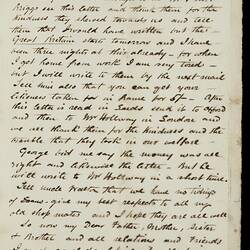 Briggs in this letter and thank them for the
kindness they shewed towards us and tell
them that I would have written but the
Great Britain starts tomorrow and I have
been three nights at this already - for when
I get home from work I am very tired -
but I will write to them by the next mail
Tell him also that you can get your
likeness taken in Rame for 5/- After
this letter is read in Leeds send it to Oxford
and then to Mr Holloway in London and
we all thank them for the kindness and the
trouble that they took in our welfare
George bid me say the money was all
right and otherwise the letter - But he
will write to Mr Holloway in a short time.
Tell uncle that we have no tidings
of Isaac - give my best respects to all my
old shop mates and I hope they are all well
So now my Dear Father, Mother, Sister
& Brother and all relations and Friends